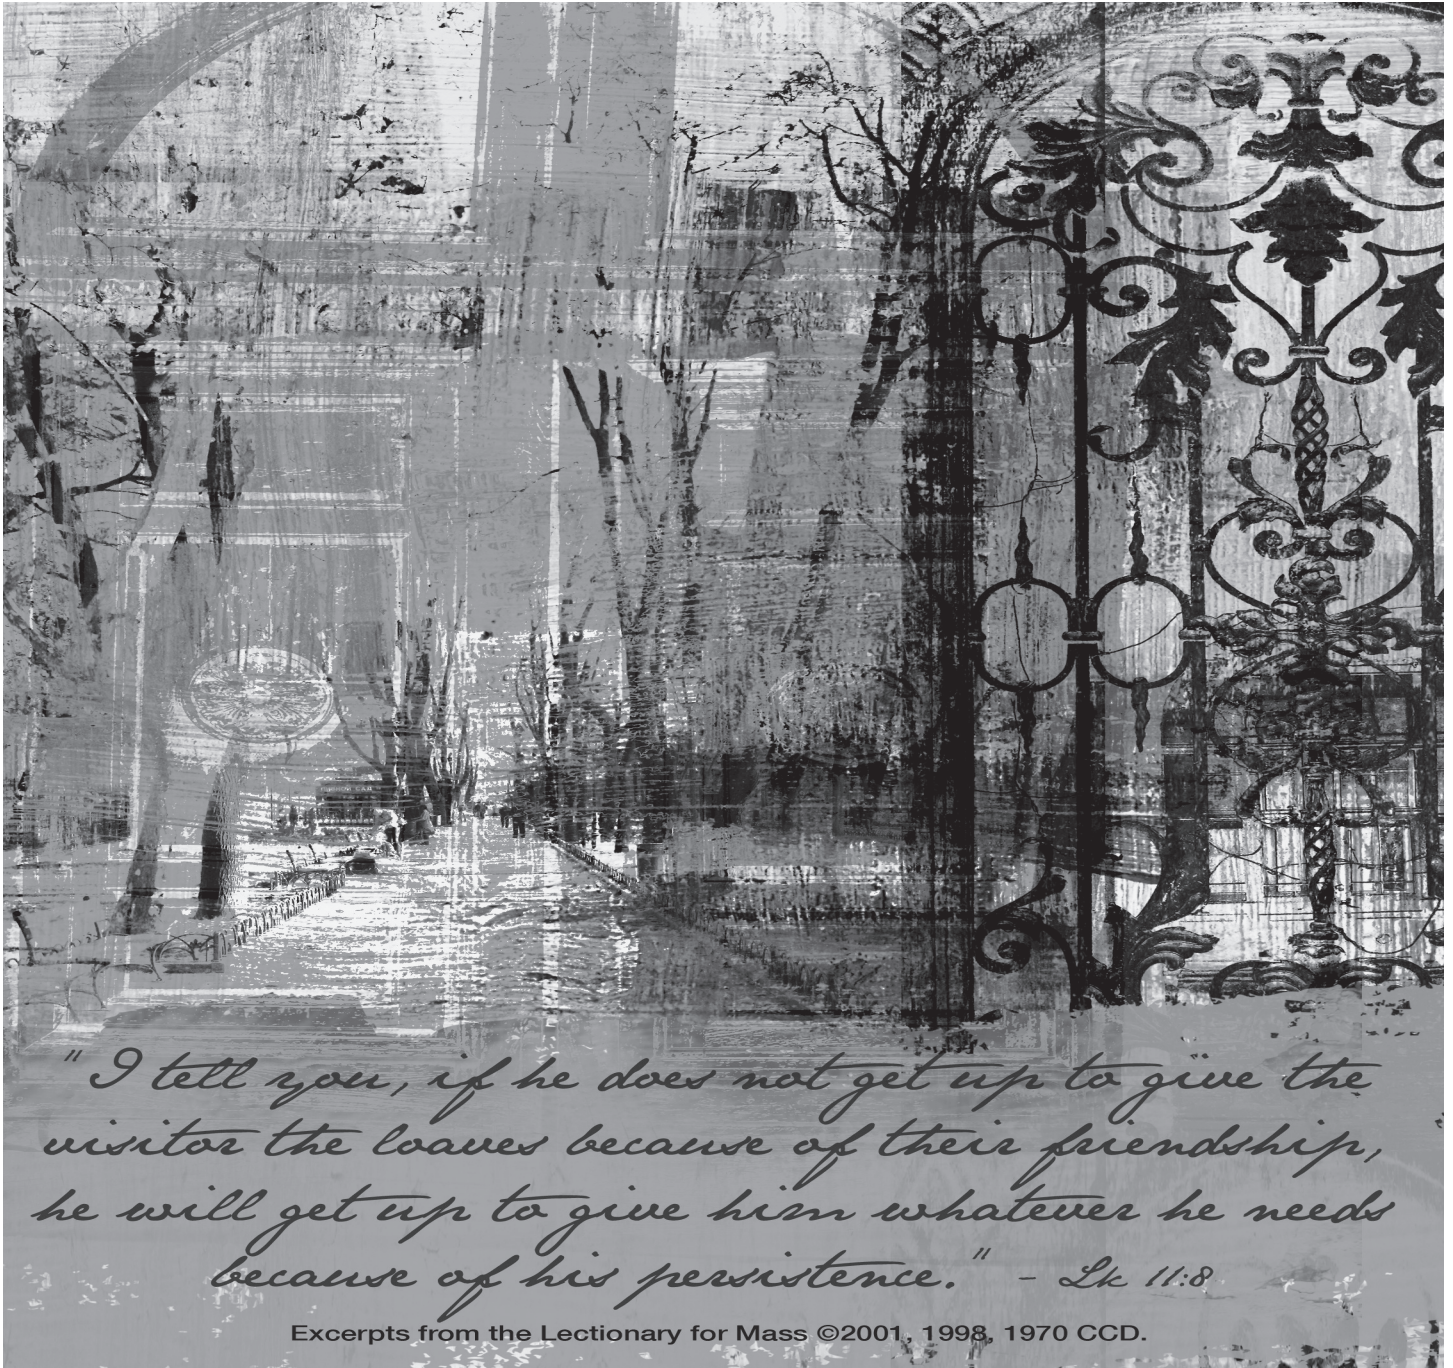 "I tell you, if he does not get up to give the
visitor the loaves because of their friendship,
he will get up to give him whatever he needs
because of his persistence." - Lk 11:8
Excerpts from the Lectionary for Mass ©2001, 1998, 1970 CCD.